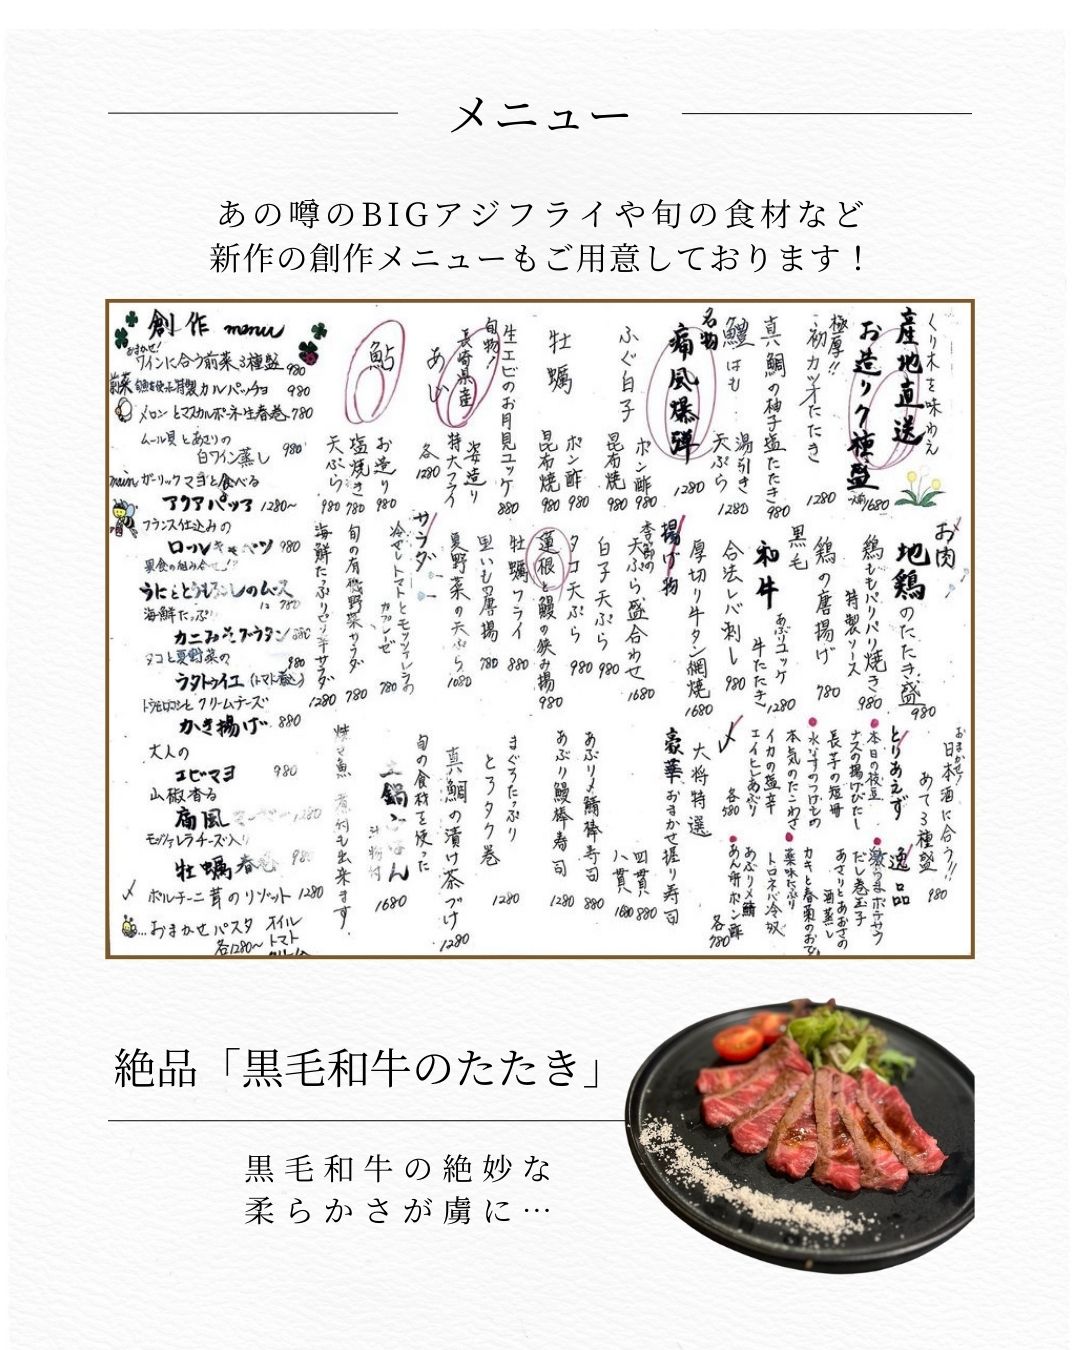 メニュー
あの噂のBIGアジフライや旬の食材など
新作の創作メニューもご用意しております！
くり木を味わえ
産地直送
お造り7種盛
1680
極厚!!
初カツオたたき
1280
真鯛の柚子塩たたき 980
鱧はも
湯引き
天ぷら 1280
名物
痛風爆弾
1280
ふぐ白子
ポン酢 980
昆布焼 980
牡蠣
ポン酢 980
昆布焼 980
生エビのお月見ユッケ 880
旬物!
長崎県産
あじ
姿造り
特大フライ
各1280
鮎
お造り 980
塩焼き 780
天ぷら 980
お肉
地鶏のたたき盛 980
鶏ももパリパリ焼き
特製ソース
980
鶏の唐揚げ 780
黒毛
和牛
あぶりユッケ
牛たたき
1280
合法レバ刺し 980
厚切り牛タン網焼 1680
揚げ物
季節の
天ぷら盛合わせ 1680
白子天ぷら 980
タコ天ぷら 980
蓮根と鰻の挟み揚 980
牡蠣フライ 880
里いも唐揚 780
夏野菜の天ぷら 1080
サラダ
冷せしトマトとモッツァレラの
カプレーゼ 780
旬の有機野菜サラダ 780
海鮮たっぷりピリ辛サラダ 1280
おまかせ!
日本酒に合う!!
あて3種盛 980
とりあえず
本日の枝豆
ナスの揚げびたし
長芋の短冊
水なすのつけもの
本気のたこわさ
イカの塩辛
エイヒレあぶり
各580
逸品
激うまポテサラ
だし巻玉子
あさりとあおさの
酒蒸し
カキと春菊のおで
薬味たっぷり
トロネバ冷奴
あぶり〆鯖
あん肝ポン酢
各780
〆
大将特選
豪華おまかせ握り寿司
四貫 880
八貫 1680
あぶり〆鯖棒寿司 880
あぶり鰻棒寿司 1280
まぐろたっぷり
とろタク巻 1280
真鯛の漬け茶づけ 1280
旬の食材を使った
土鍋ごはん
汁物付
1680
焼き魚 煮付も出来ます。
創作menu
おまかせ!
ワインに合う前菜3種盛 980
前菜 特製カルパッチョ 980
メロンとマスカルポーネ生春巻 780
ムール貝とあさりの
白ワイン蒸し 980
main ガーリックマヨと食べる
アクアパッツァ 1280~
フランス仕込みの
ロールキャベツ 980
うにととうもろこしのムース
780
海鮮たっぷり
カニみそグラタン
タコと夏野菜の
980
ラタトゥイユ (トマト煮込)
トウモロコシとクリームチーズ
かき揚げ 880
大人の
エビマヨ 980
山椒香る
痛風
1280
モッツァレラチーズ入り
牡蠣春巻
ポルチーニ茸のリゾット 1280
おまかせパスタ オイル
各1280~ トマト
クリーム
絶品「黒毛和牛のたたき」
黒毛和牛の絶妙な
柔らかさが虜に…